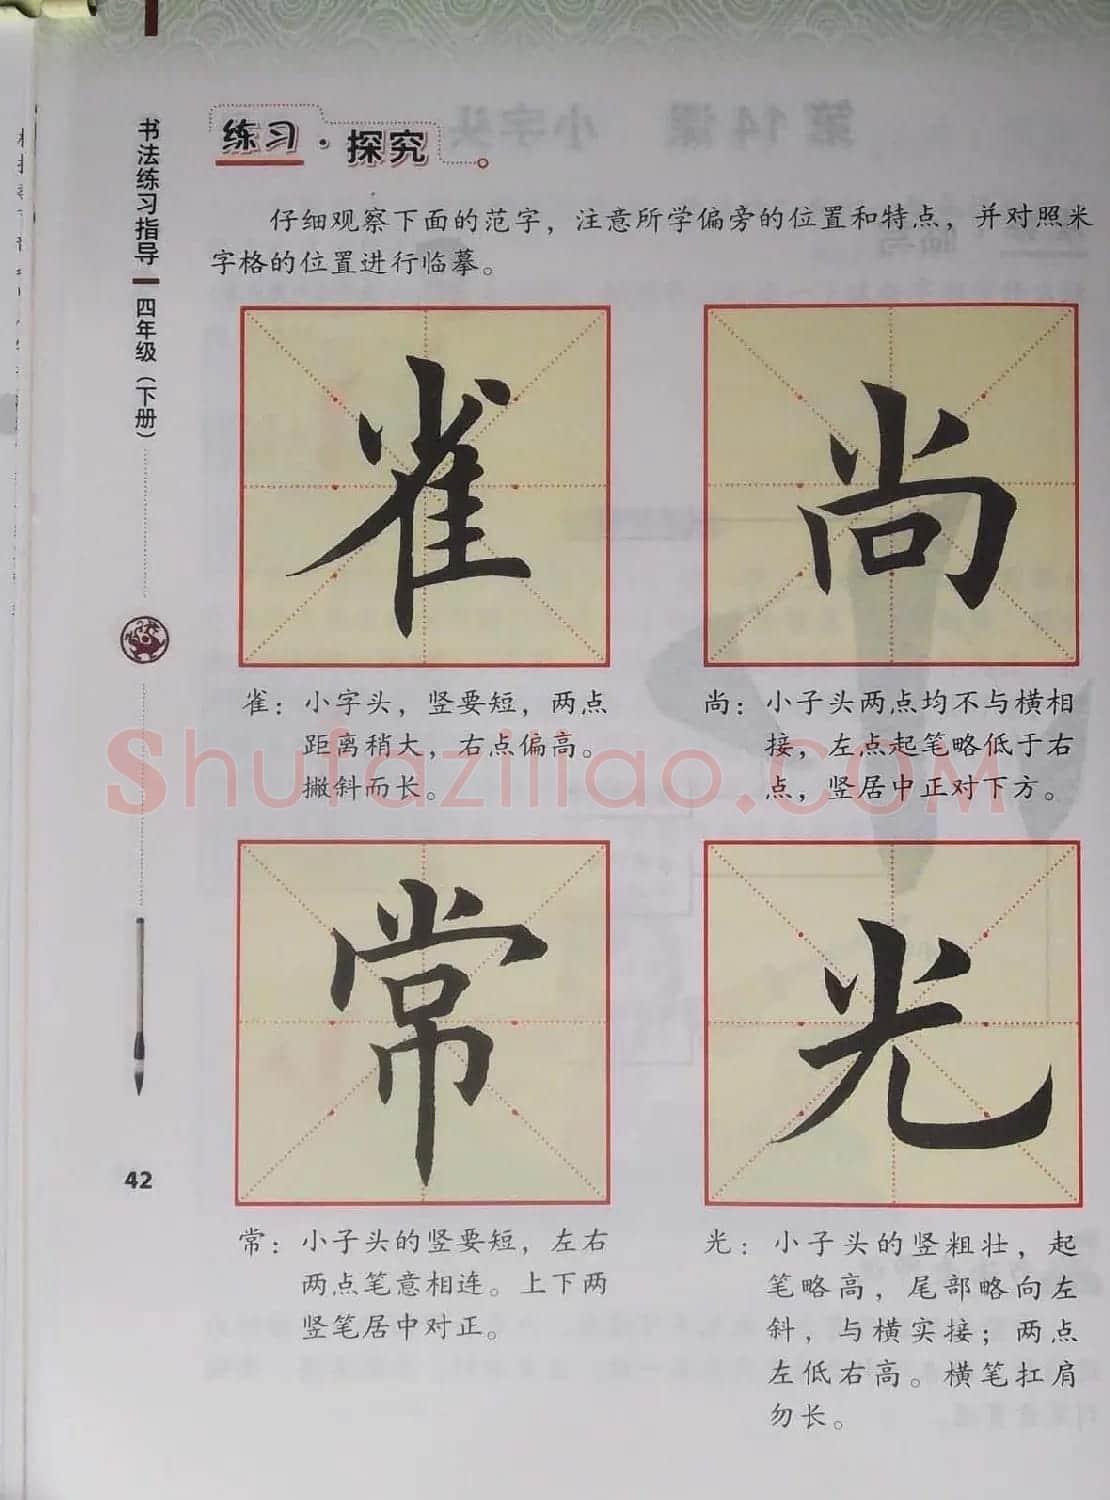 书法练习指导
四年级（下册）
42
练习·探究
仔细观察下面的范字，注意所学偏旁的位置和特点，并对照米
字格的位置进行临摹。
雀
尚
雀：小字头，竖要短，两点
距离稍大，右点偏高。
撇斜而长。
尚：小子头两点均不与横相
接，左点起笔略低于右
点，竖居中正对下方。
shufaziliao.com
常
光
常：小子头的竖要短，左右
两点笔意相连。上下两
竖笔居中对正。
光：小子头的竖粗壮，起
笔略高，尾部略向左
斜，与横实接；两点
左低右高。横笔扛肩
勿长。
第14课 小字头